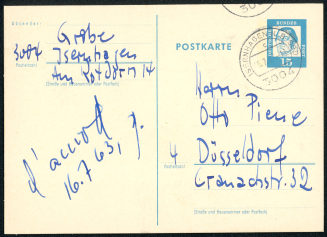 Absender:
Gräbe
3004 Isernhagen
Am Rotdorn 14
Postleitzahl
(Straße und Hausnummer oder Postfach)
16.7.63
POSTKARTE
DEUTSCHE
15
3004
Herrn
Otto Piene
4 Düsseldorf
Postleitzahl
Cranachstr. 32
(Straße und Hausnummer oder Postfach)